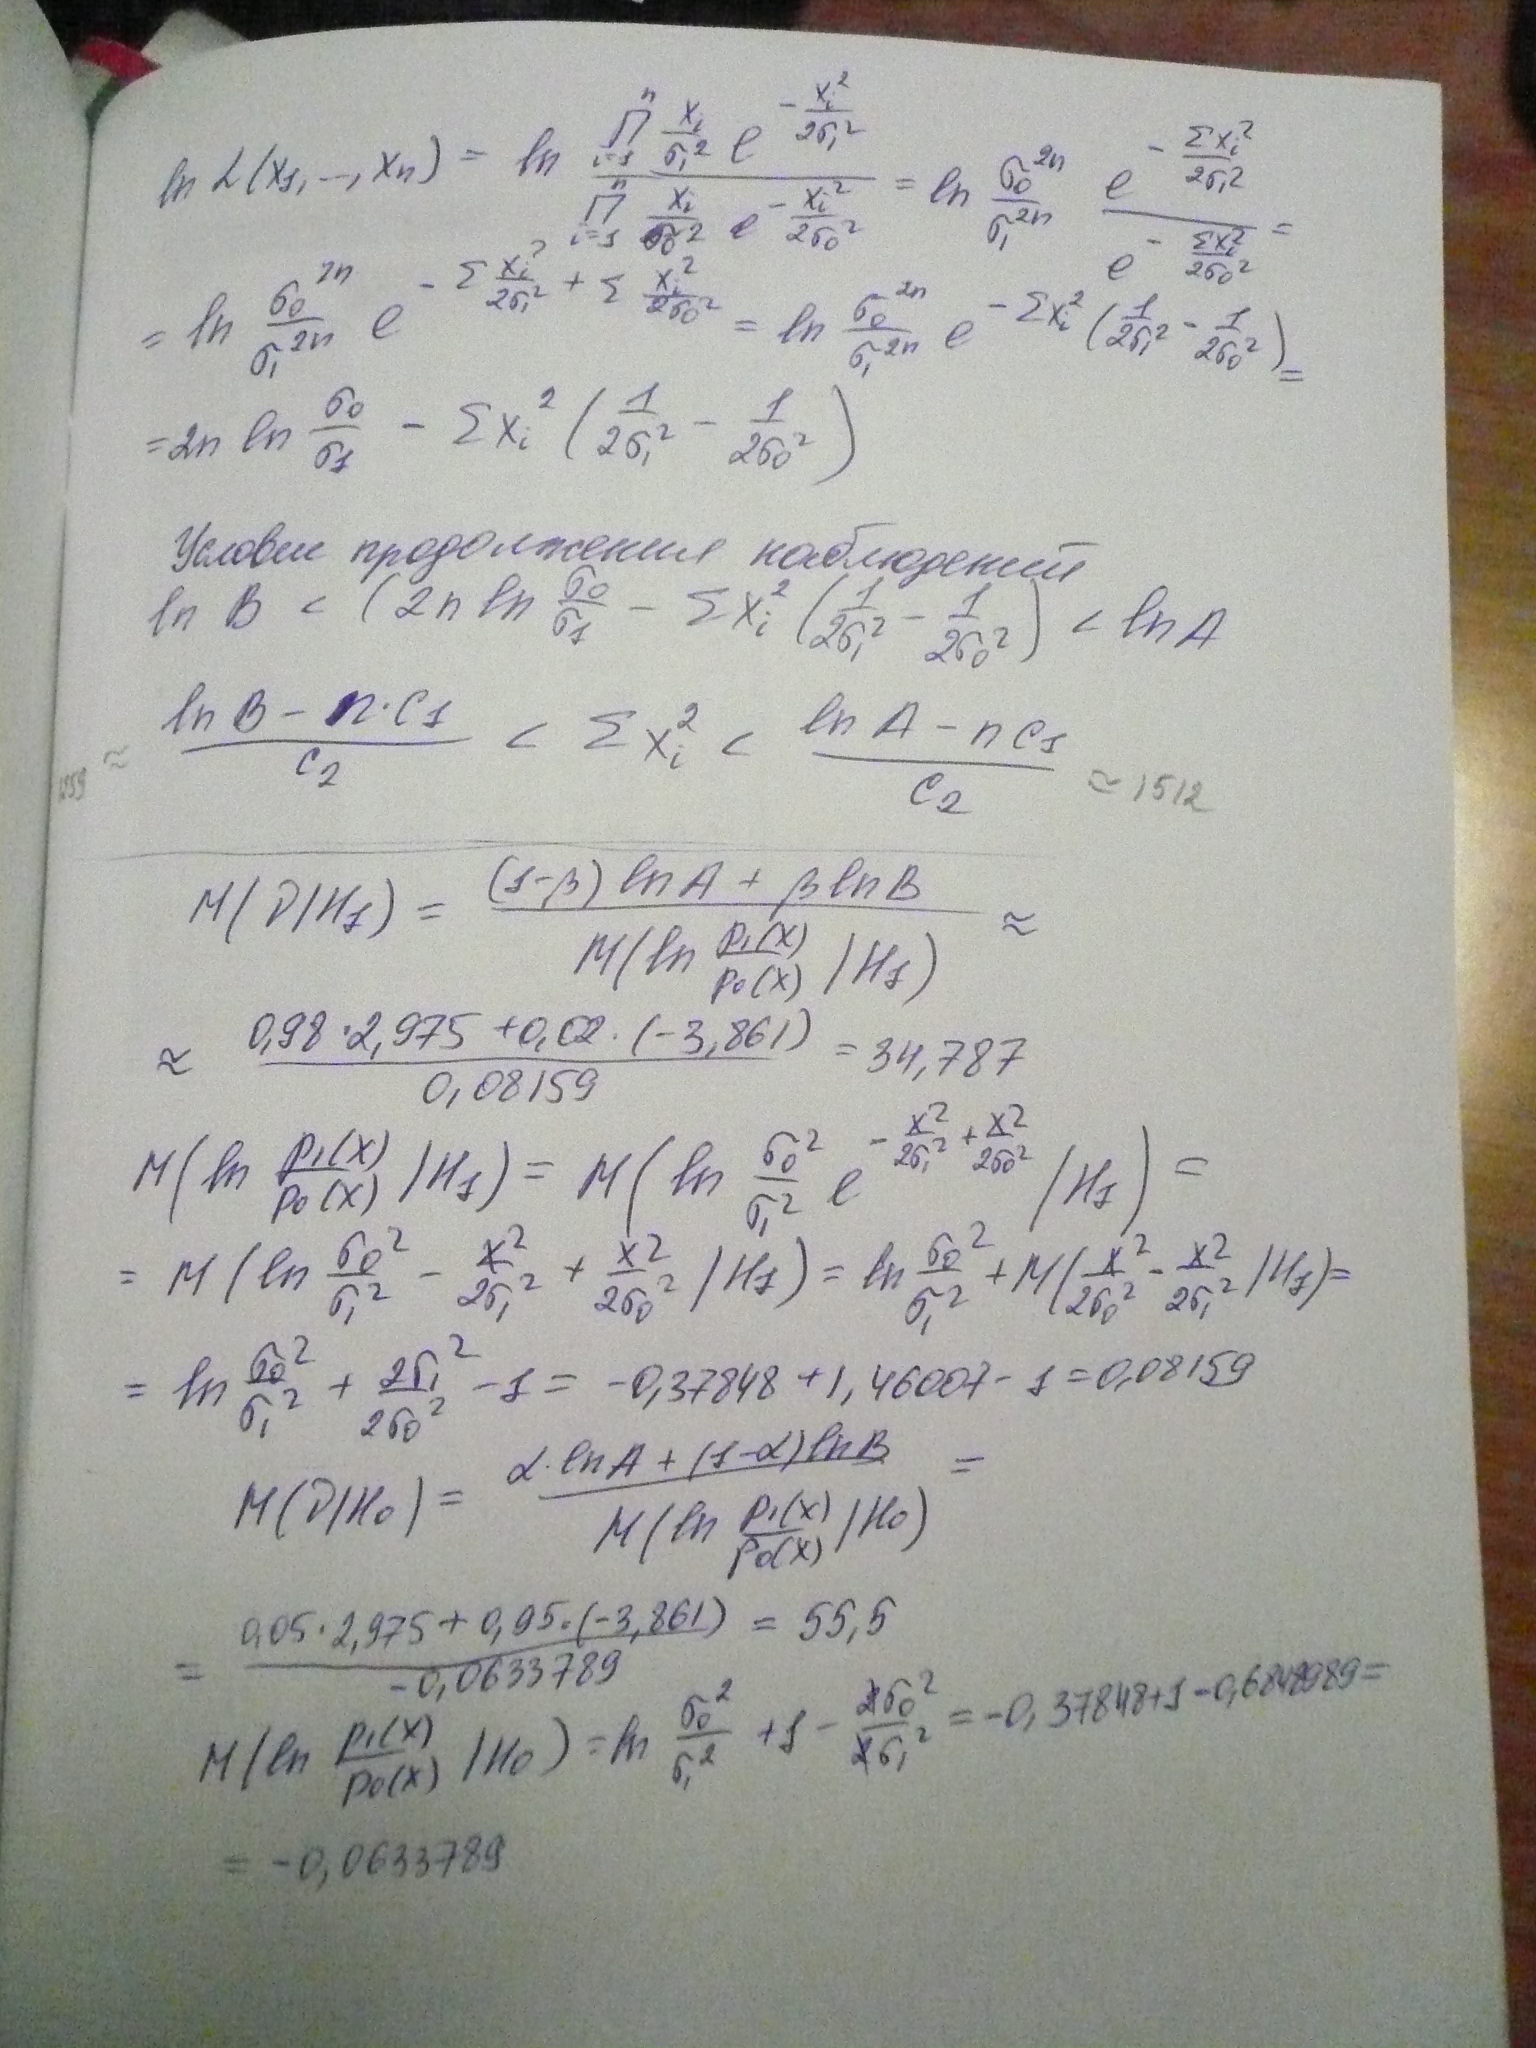 ln L(x₁,..,xₙ) = ln (∏ᵢ₌₁ⁿ xᵢ/σ₁² e^(-xᵢ²/2σ₁²)) / (∏ᵢ₌₁ⁿ xᵢ/σ₀² e^(-xᵢ²/2σ₀²)) = ln σ₀²ⁿ/σ₁²ⁿ e^(-Σxᵢ²/2σ₁²) / e^(-Σxᵢ²/2σ₀²) =
= ln σ₀²ⁿ/σ₁²ⁿ e^(-Σ xᵢ²/2σ₁² + Σ xᵢ²/2σ₀²) = ln σ₀²ⁿ/σ₁²ⁿ e^(-Σxᵢ²(1/2σ₁² - 1/2σ₀²)) =
= 2n ln σ₀/σ₁ - Σxᵢ² (1/2σ₁² - 1/2σ₀²)
Условие продолжения наблюдений
ln B < (2n ln σ₀/σ₁ - Σxᵢ² (1/2σ₁² - 1/2σ₀²) < ln A
≈ (ln B - n·C₁)/C₂ < Σxᵢ² < (ln A - nC₁)/C₂ ≈ 1512
M(ν/H₁) = ((1-β) ln A + β ln B) / M(ln p₁(x)/p₀(x) /H₁) ≈
≈ (0,98·2,975 + 0,02·(-3,861)) / 0,08159 = 34,787
M(ln p₁(x)/p₀(x) /H₁) = M(ln σ₀²/σ₁² e^(-x²/2σ₁² + x²/2σ₀²) /H₁) =
= M(ln σ₀²/σ₁² - x²/2σ₁² + x²/2σ₀² /H₁) = ln σ₀²/σ₁² + M(x²/2σ₀² - x²/2σ₁² /H₁) =
= ln σ₀²/σ₁² + 2σ₁²/2σ₀² - 1 = -0,37848 + 1,46007 - 1 = 0,08159
M(ν/H₀) = (α·ln A + (1-α) ln B) / M(ln p₁(x)/p₀(x) /H₀) =
= (0,05·2,975 + 0,95·(-3,861)) / -0,0633789 = 55,5
M(ln p₁(x)/p₀(x) /H₀) = ln σ₀²/σ₁² + 1 - 2σ₀²/2σ₁² = -0,37848 + 1 - 0,6848989 =
= -0,0633789